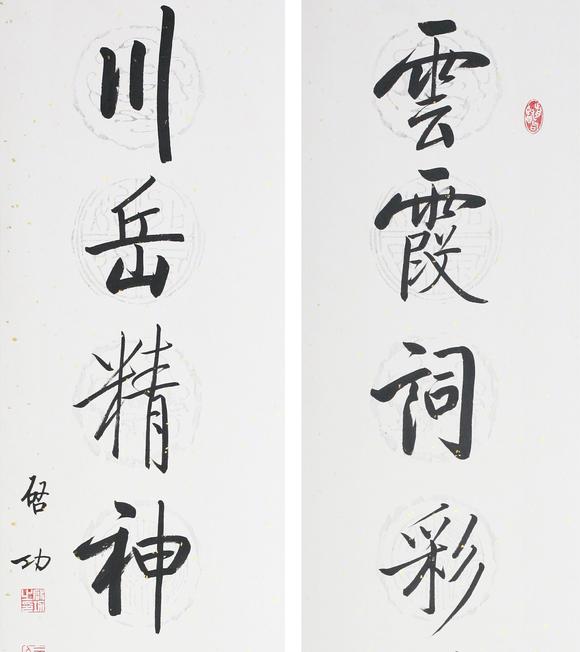 雲霞詞彩
川岳精神
啓功